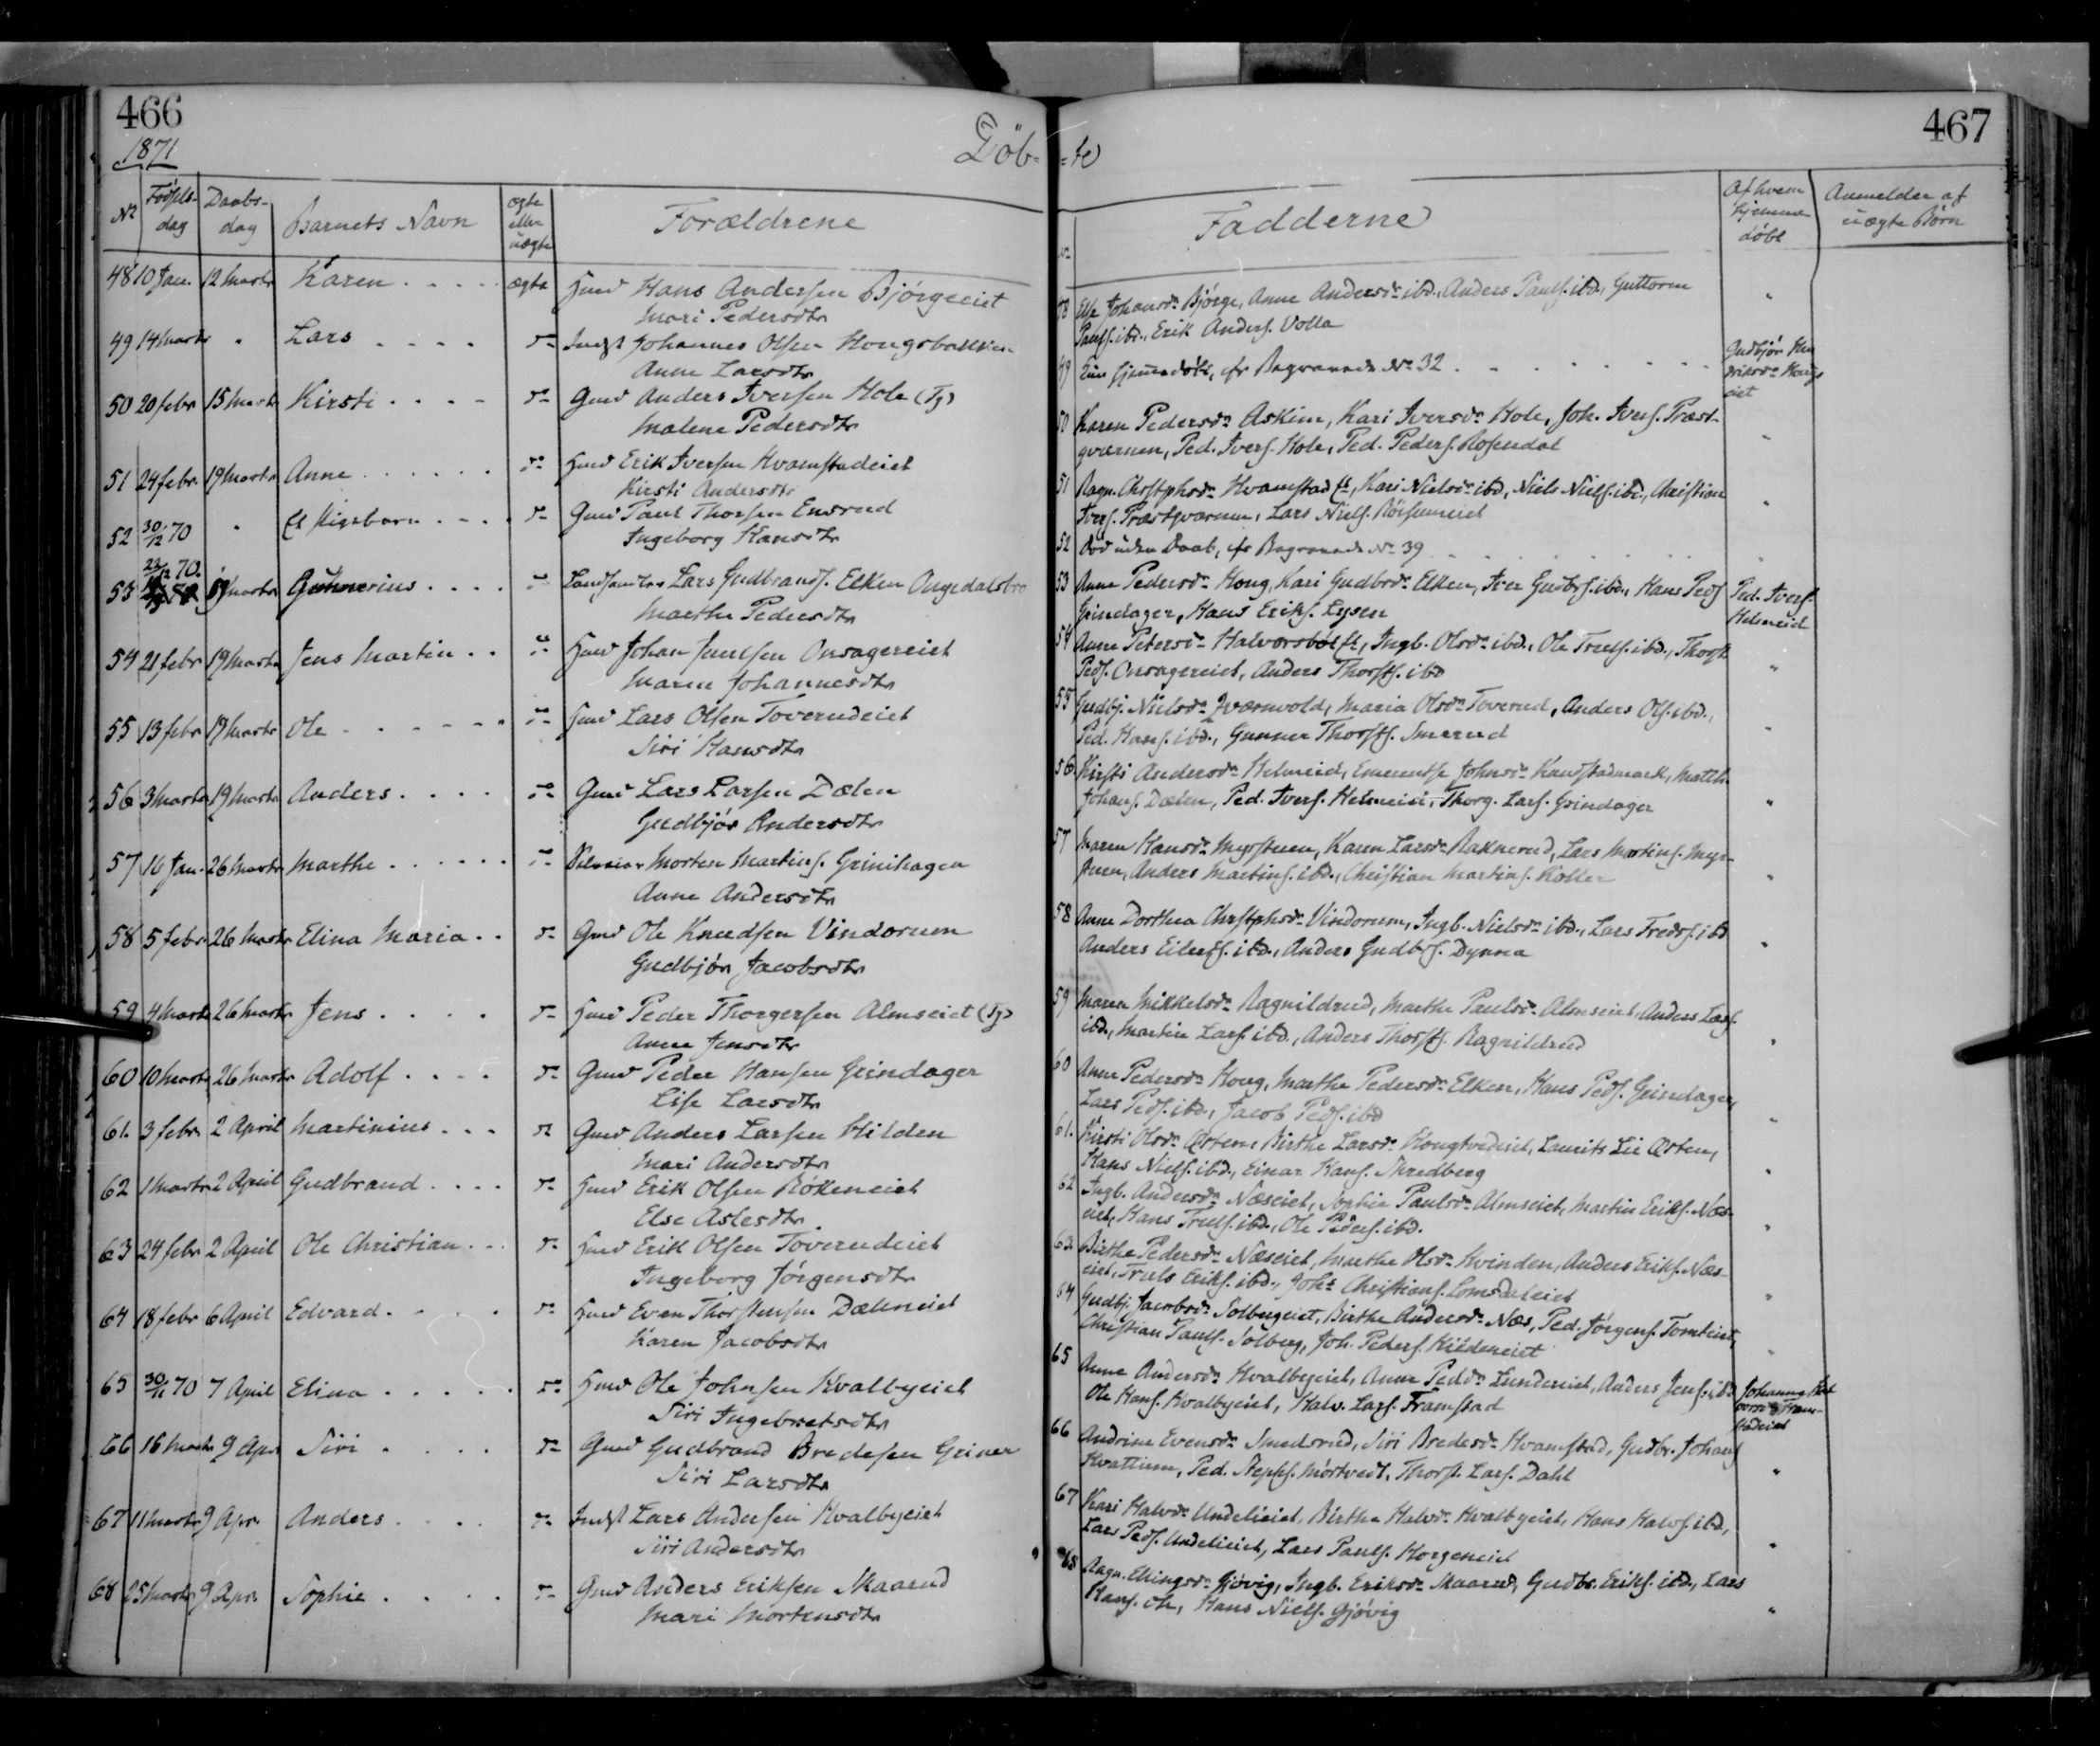 466
1871
Döb-
Nr
Fødsels-dag
Daabs-dag
Barnets Navn
ægte eller uægte
Forældrene
48 10 Jan. 12 Marts Karen . . . . . ægte Hmd Hans Andersen Bjørgeeiet
Mari Pedersdtr
49 14 Marts " Lars . . . . Indst Johannes Olsen
Anne Larsdtr
50 20 febr 15 Marts Kirsti . . . . Gmd Anders Iversen Hole (Tj)
Malene Pedersdtr
51 24 febr. 19 Marts Anne . . . . . . Hmd Erik Iversen Hvamstadeiet
Kirsti Andersdtr
52 30/12 70 " Et Pigebarn . . . . Gmd Paul Thorsen Ensrud
Ingeborg Hansdtr
53 23/12 70. 19 Marts Gunnerius . . . . Lars Gudbrands. Elken
Marthe Pedersdtr
54 21 febr 19 Marts Jens Martin . . Hmd Johan Onsagereiet
Maren Johannesdtr
55 13 febr 19 Marts Ole . . . . . . Hmd Lars Olsen Toverudeiet
Siri Hansdtr
56 3 Marts 19 Marts Anders . . . . Gmd Lars Larsen Dælen
Gudbjør Andersdtr
57 16 Jan. 26 Marts Marthe . . . . . . Morten Martins. Grinihagen
Anne Andersdtr
58 5 febr 26 Marts Elina Maria . . Gmd Ole Knudsen Vindorum
Gudbjør Jacobsdtr
59 4 Marts 26 Marts Jens . . . . Hmd Peder Thorgersen Almseiet (Tj)
Anne Jensdtr
60 10 Marts 26 Marts Adolf . . . . Gmd Peder Hansen Grindager
Lise Larsdtr
61. 3 febr 2 April Martinius . . . Gmd Anders Larsen Hilden
Mari Andersdtr
62 1 Marts 2 April Gudbrand . . . . Hmd Erik Olsen Rökeneiet
Else Aslesdtr.
63 24 febr 2 April Ole Christian . . Hmd Erik Olsen Toverudeiet
Ingeborg Jörgensdtr
64 18 febr 6 April Edvard . . . . Hmd Even Thorstensen Dæleneiet
Karen Jacobsdtr
65 30/11 70 7 April Elina . . . . . . Hmd Ole Johnsen Kvalbyeiet
Siri Ingebretsdtr
66 16 Marts 9 Apr. Siri . . . . . Gmd Gudbrand Bredesen Griner
Siri Larsdtr
67 11 Marts 9 Apr. Anders . . . . Indst Lars Andersen Kvalbyeiet
Siri Andersdtr
68 25 Marts 9 Apr. Sophie . . . . . Gmd Anders Eriksen Skaarud
Mari Mortensdtr
467
-te
Fadderne
Af hvem hjemme døbt
Anmelder af uægte Børn
48 Else Johansdr Bjørge, Anne Andersdr ibd., Anders Pauls. ibd., Guttorm
Pauls. ibd., Erik Anders. Volla
49 hjemmedöbt, cfr Begravede No 32 . . . . . . . Gudbjør
50 Karen Pedersdr Askim, Kari Iversdr Hole, Joh. Ivers. Præst-
qværnen, Ped. Ivers. Hole, Ped. Peders. Rosendal
51 Ragn. Chrstphsdr Hvamstad, Kari Nielsdr ibd, Niels Niels. ibd., Christian
Ivers. Præstqværnen, Lars Niels.
52 Död uden Daab, cfr Begravede No 39
53 Anne Pedersdr Houg, Kari Gudbrdr Elken, Iver Gudbrs. ibd., Hans Peds Ped. Ivers.
Grindager, Hans Eriks. Lysen Helmeid
54 Anne Petersdr Halvorsböl, Ingb. Olsdr ibd., Ole Truls. ibd., Thorst.
Peds. Onsagereiet, Anders Thorsts. ibd
55 Gudbj. Nielsdr Qværnvold, Maria Olsdr Toverud, Anders Ols. ibd.,
Ped. Hans. ibd., Gunner Thorsts. Smerud
56 Kirsti Andersdr Helmeid, Johnsdr
Johans. Dælen, Ped. Ivers. Helmeid, Thorg. Lars. Grindager
57 Maren Hansdr Myrstuen, Karen Larsdr Raknerud, Lars Martins. Myr-
stuen, Anders Martins. ibd., Christian Martins. Koller
58 Anne Dorthea Chrstphsdr Vindorum, Ingb. Nielsdr ibd., Lars Freds. ibd
Anders Eilerts. ibd., Anders Gudbrs. Dynna
59 Maren Mikkelsdr Ragnildrud, Marthe Paulsdr Almseiet, Anders Lars.
ibd., Martin Lars. ibd., Anders Thorsts. Ragnildrud
60 Anne Pedersdr Houg, Marthe Pedersdr Elken, Hans Peds. Grindager,
Lars Peds. ibd., Jacob Peds. ibd
61. Kirsti Olsdr Østen, Birthe Larsdr Laurits Lie Østen,
Hans Niels. ibd., Einar Hans.
62 Ingb. Andersdr Næseiet, Sophie Paulsdr Almseiet, Martin Eriks. Næs-
eiet, Hans Truls. ibd., Ole Peders. ibd.
63. Birthe Pedersdr Næseiet, Marthe Olsdr Hvinden, Anders Eriks. Næs-
eiet, Truls Eriks. ibd., Johs Christians. Lomsdaleiet
64 Gudbj. Jacobsdr Solbergeiet, Birthe Andersdr Næs, Ped. Jørgens. Tomteiet,
Christian Pauls. Solberg, Joh. Peders. Kildeneiet
65 Anne Andersdr Hvalbyeiet, Anne Peddr Lundereiet, Anders Jens. ibd Johanne
Ole Hans. Kvalbyeiet, Halv. Lars. Framstad
66 Andrine Evensdr Smedsrud, Siri Bredesdr Hvamstad, Gudbr. Johans
Hvattum, Ped. Steph. Mörtvedt, Thorst. Lars. Dahl
67 Kari Halvdr Undelieiet, Birthe Halvdr Hvalbyeiet, Hans Halvs. ibd,
Lars Peds. Undelieiet, Lars Pauls. Horgeneiet
68 Ragn. Ellingsdr Gjövig, Ingb. Eriksdr Skaarud, Gudbr. Eriks. ibd., Lars
Hans. Hans Niels. Gjövig